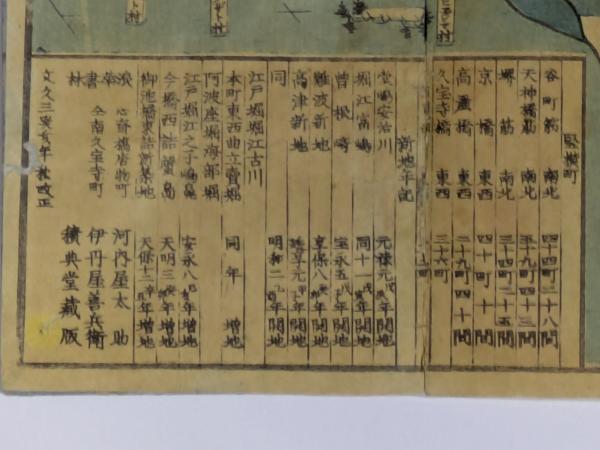 竪横町
谷町筋 南北 四十四町二十八間
天神橋筋 南北 五十九町四十三間
堺筋 南北 三十四町二十五間
京橋 東西 四十町十間
高麗橋 東西 二十九町四十間
久宝寺橋 東西 三十六町
新地年記
堂嶋安治川 元禄元戊辰年開地
堀江富嶋 同十一戊寅年開地
曽根崎 宝永五戊子年開地
難波新地 享保八癸卯年開地
高津新地 享元甲子年開地
同 明和二乙酉年開地
江戸堀堀江古川
本町東西曲立賣堀 同年増地
阿波座堀海部堀
江戸堀江之子嶋 安永八亥年増地
今橋西詰蟹嶌 天明三卯年増地
柳池堀東詰新築地 天保十二辛丑年増地
浪華 心斎橋唐物町 河内屋太助
書林 仝南久宝寺町 伊丹屋善兵衛
文久三癸亥年 改正 積典堂蔵版